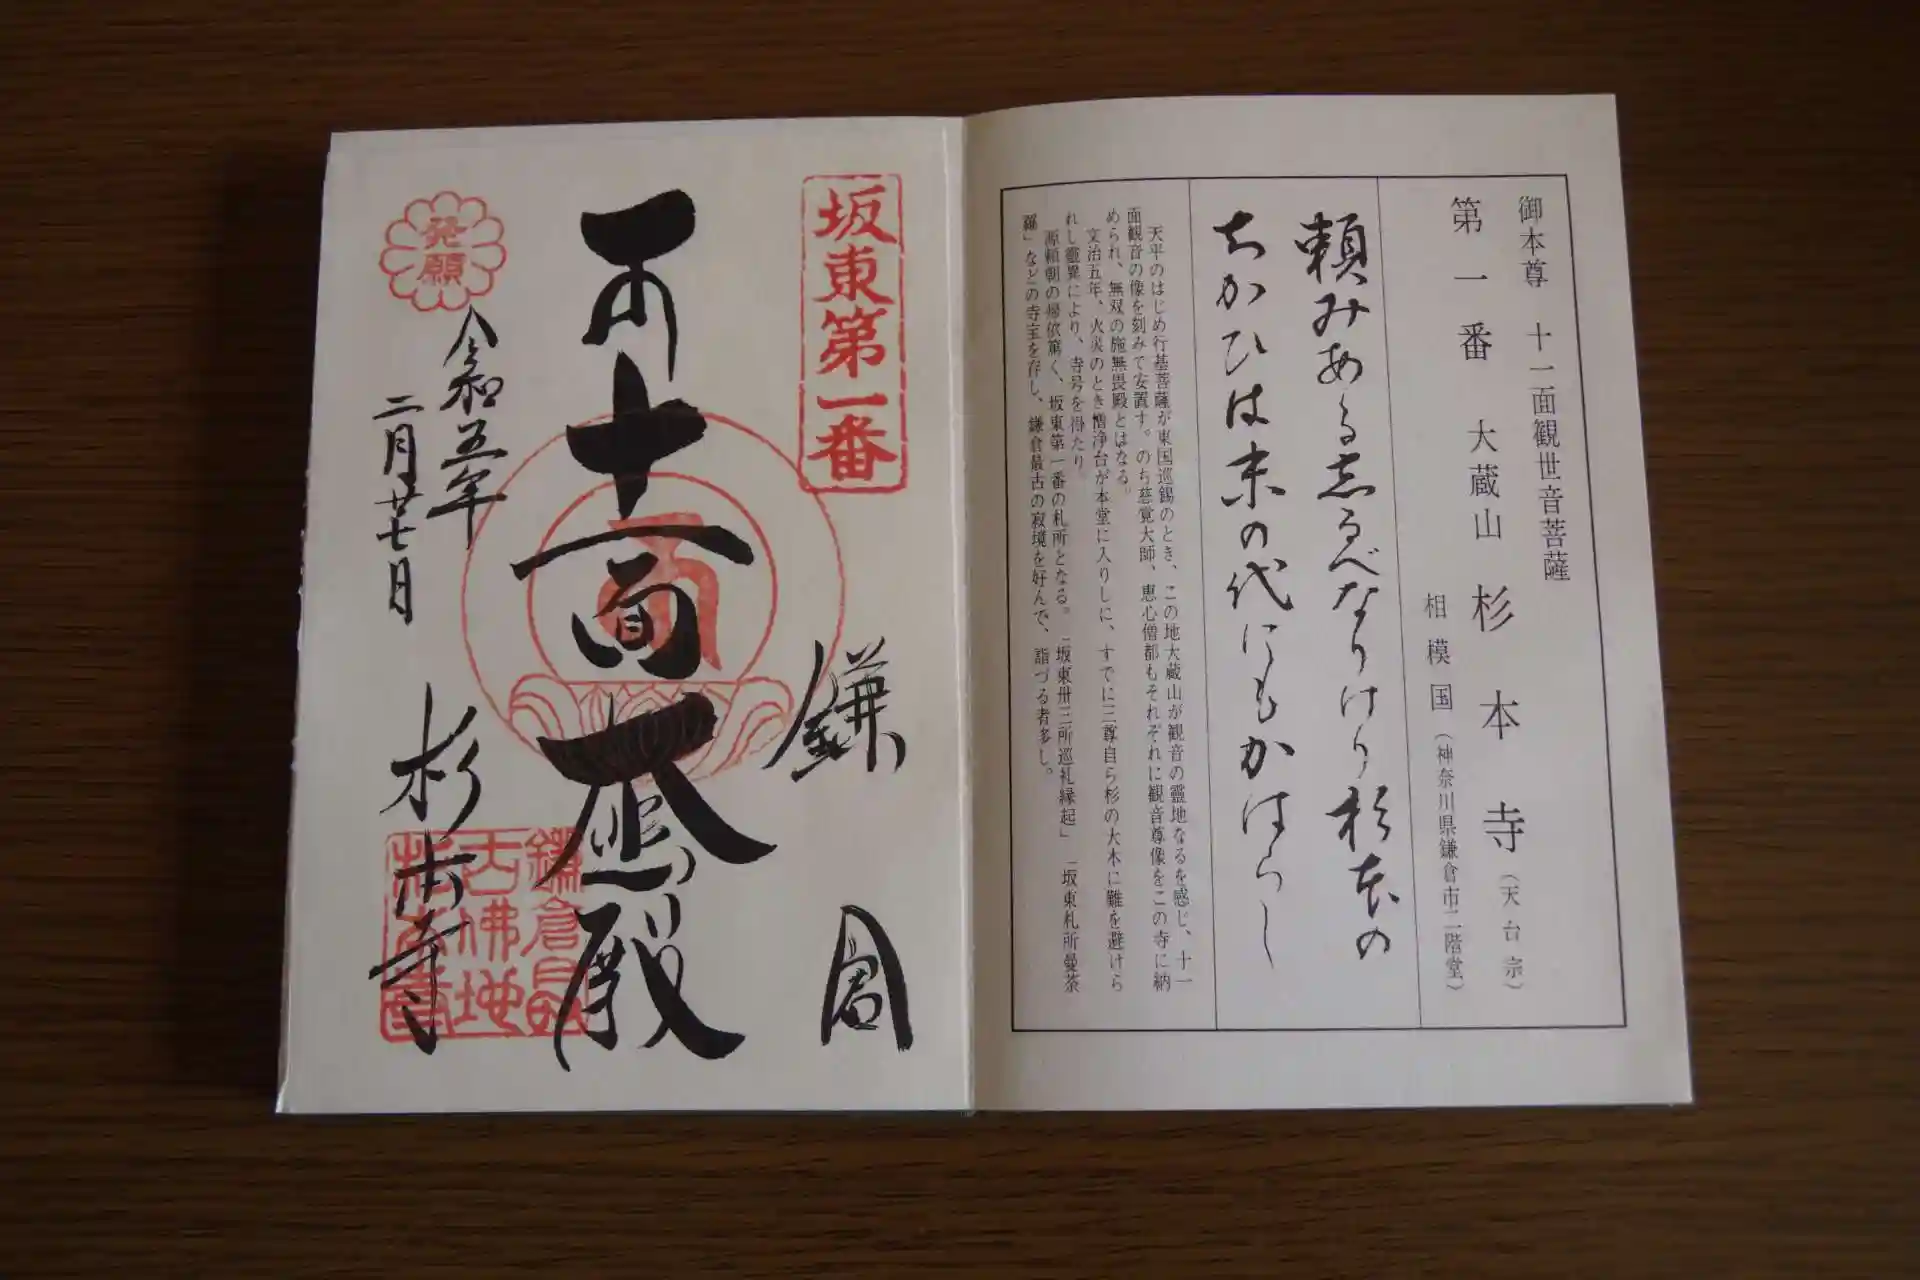 御本尊 十一面観世音菩薩
第一番 大蔵山 杉本寺(天台宗)
相模国(神奈川県鎌倉市二階堂)
頼みあるしるべなりけり杉本の
ちかひは末の代にもかはらじ
天平のはじめ行基菩薩が東国巡錫のとき、この地大蔵山が観音の霊地なるを感じ、十一
面観音の像を刻みて安置す。のち慈覚大師、恵心僧都もそれぞれに観音尊像をこの寺に納
められ、無双の施無畏殿とはなる。
文治五年、火災のとき僧浄台が本堂に入りしに、すでに三尊自ら杉の大木に難を避けら
れし霊異により、寺号を得たり。
源頼朝の帰依篤く、坂東第一番の札所となる。「坂東卅三所巡礼縁起」「坂東札所曼荼
羅」などの寺宝を存し、鎌倉最古の寂境を好んで、詣づる者多し。
坂東第一番
鎌倉
十一面大悲殿
発願
令和五年
二月廿七日
杉本寺